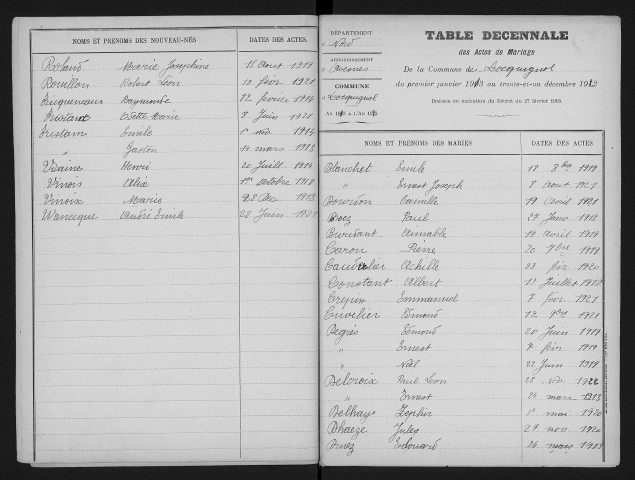 NOMS ET PRÉNOMS DES NOUVEAU-NÉS DATES DES ACTES.
Roland Marie Joséphine 15 Aout 1919
Rouillon Robert Léon 10 févr 1921
Raymonde 12 février 1914
Tristant Odette Marie 8 Juin 1921
Tristam Emile 1er 1914
" Gaston 14 mars 1913
Vilaine Henri 20 Juill 1914
Vinois Alix 1er octobre 1918
Vinoix Marie 23 Déc 1913
Wanecque André Emile 28 Juin 1921
DÉPARTEMENT
Nord
ARRONDISSEMENT
Avesnes
COMMUNE
Locquignol
TABLE DÉCENNALE
des Actes de Mariage
De la Commune de Locquignol
du premier janvier 1913 au trente-et-un décembre 1922
Dressée en exécution du Décret du 27 février 1913.
NOMS ET PRÉNOMS DES MARIÉS DATES DES ACTES
Blanchet Emile 18 8bre 1919
" Ernest Joseph 8 aout 1921
Camille 19 Avril 1921
Paul 27 Janv 1913
Aimable 19 avril 1919
Caron Pierre 20 9bre 1919
Caudrelier Achille 23 févr 1920
Constant Albert 13 Juillet 1918
Crépin Emmanuel 7 févr 1921
Cuvelier Edmond 12 9bre 1921
Degrés Edmond 20 Juin 1919
" Ernest 9 févr 1919
" Noël 23 Juin 1919
Delcroix Paul Léon 28 Nov 1922
" Ernest 24 mars 1913
Delhaye Zéphir 1er mai 1920
Dhaeze Jules 27 nov 1920
Druez Edouard 26 mars 1913